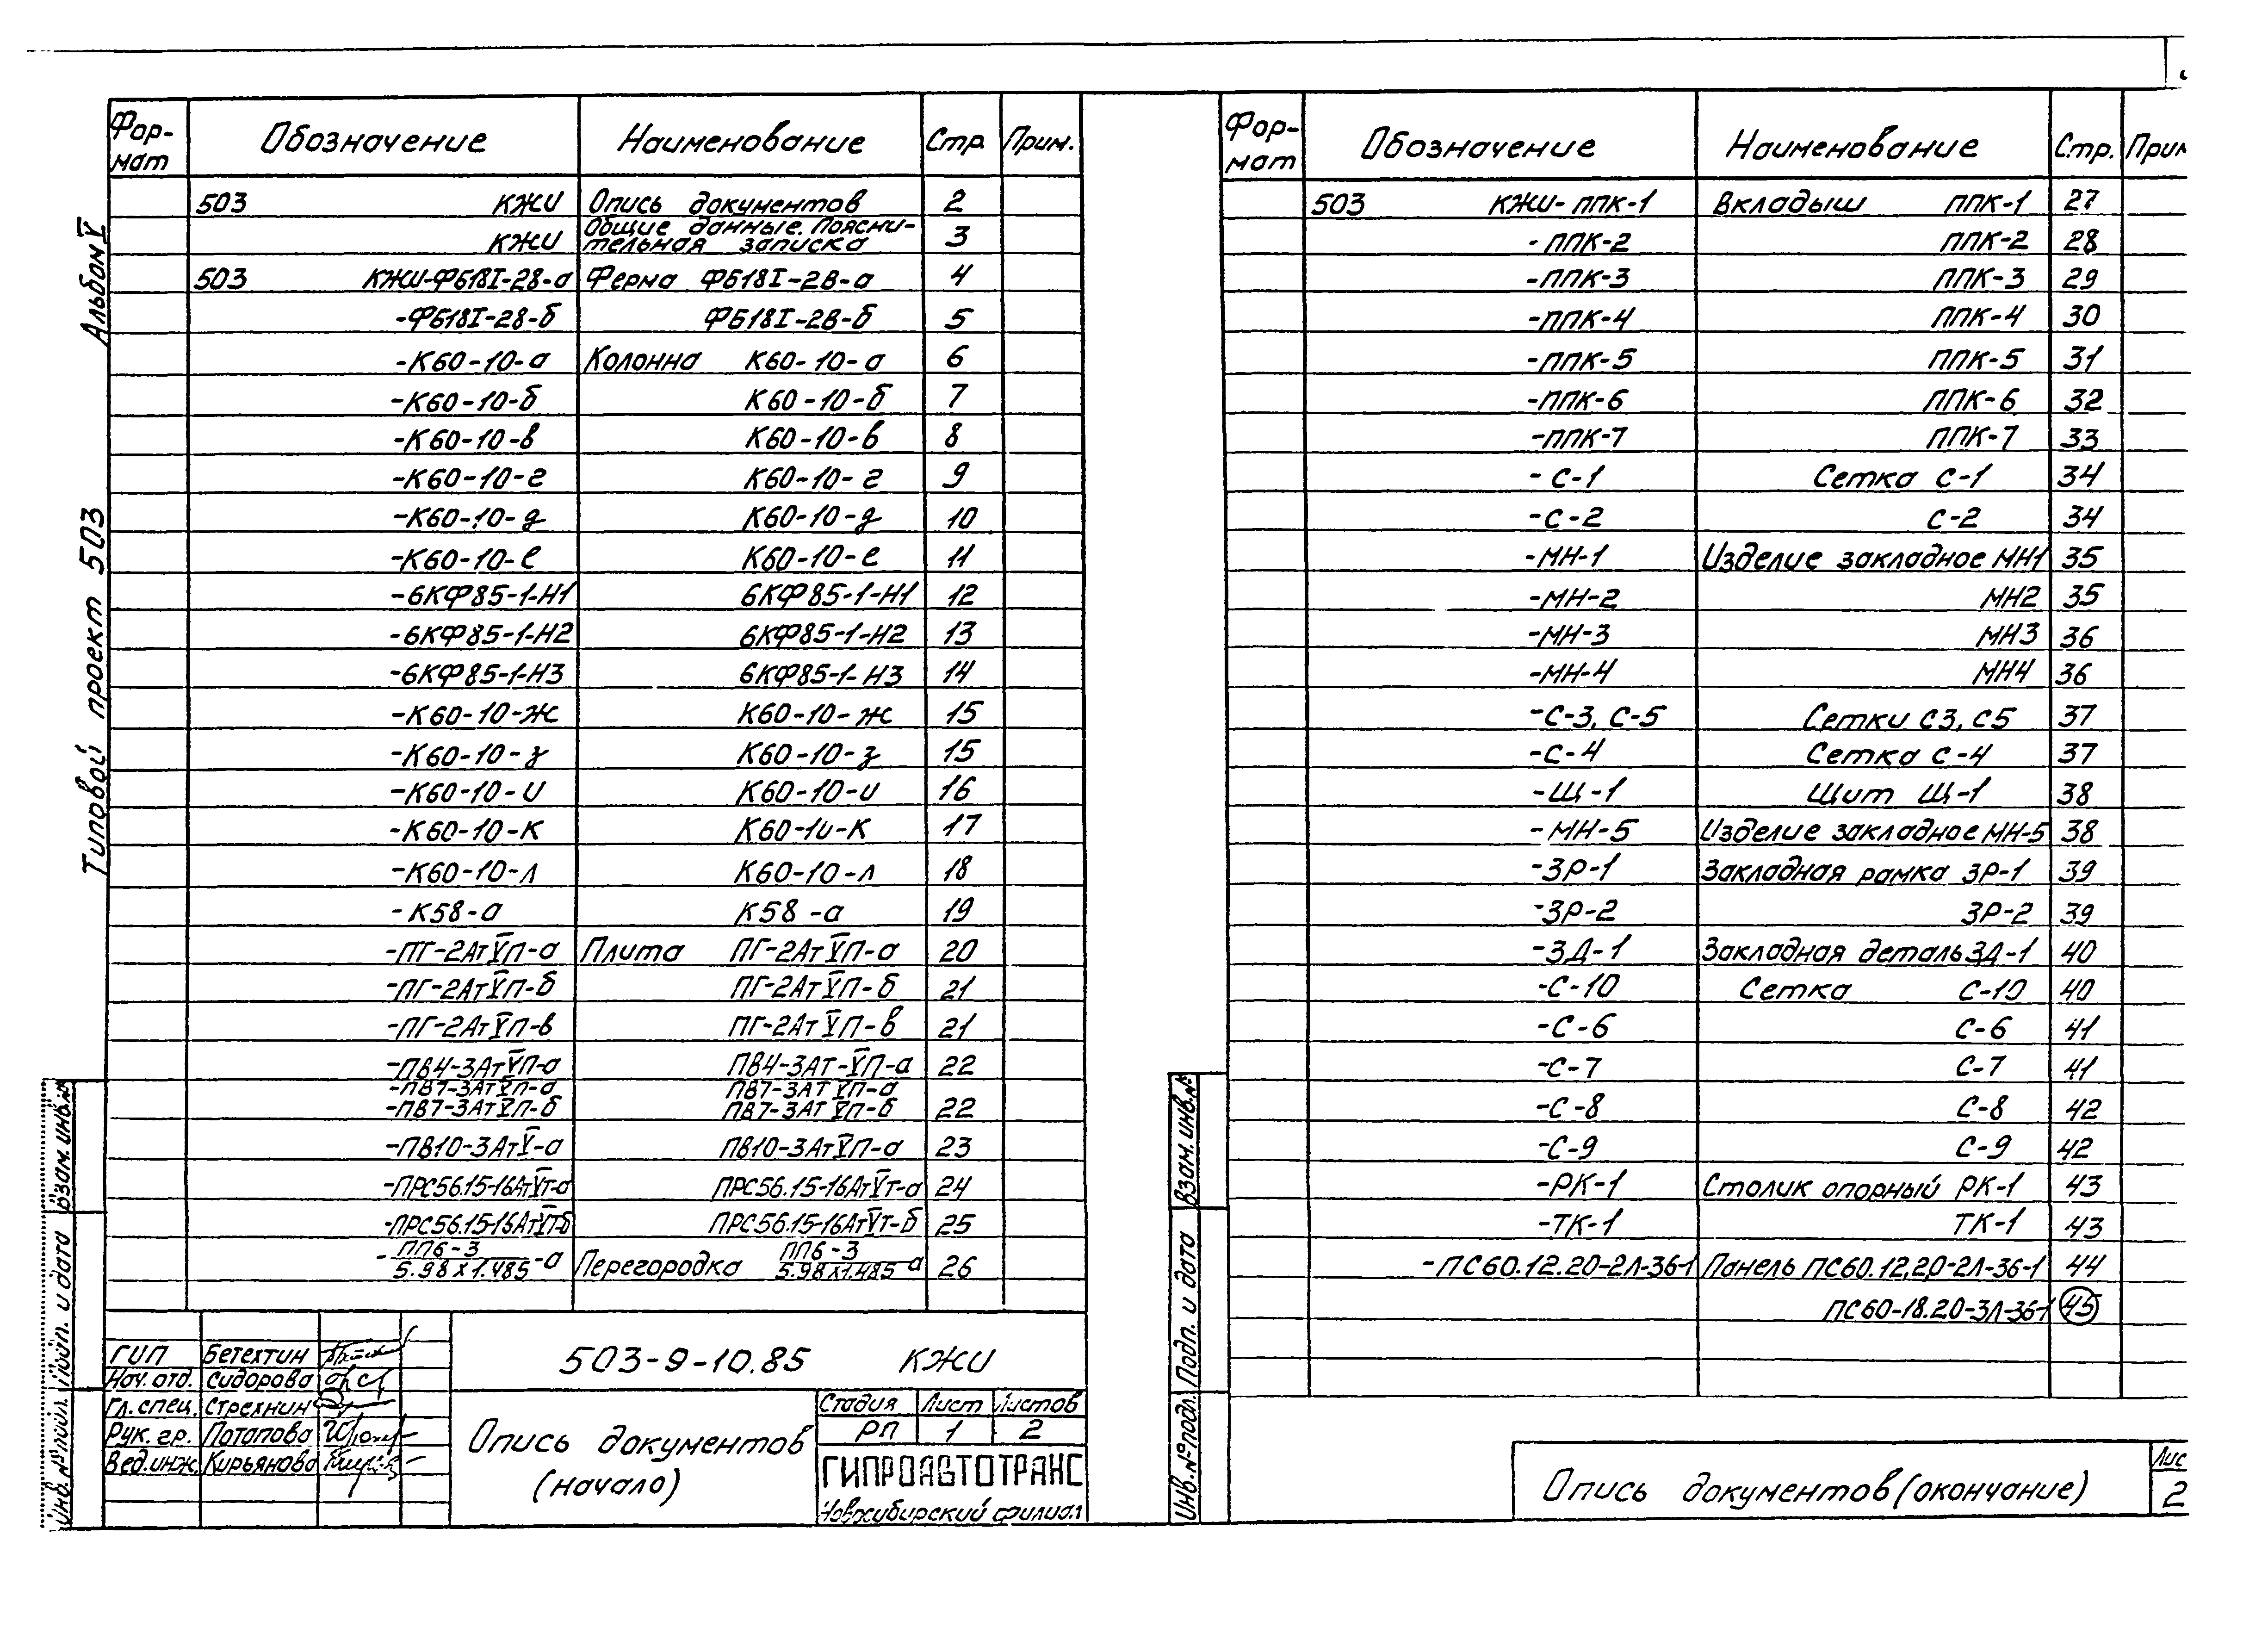 Альбом V
Типовой проект 503
Фор-
мат Обозначение Наименование Стр. Прим.
503 КЖИ Опись документов 2
КЖИ Общие данные. Поясни-
тельная записка 3
503 КЖИ-ФБ18I-28-а Ферма ФБ18I-2В-а 4
-ФБ18I-28-б ФБ18I-2В-б 5
-К60-10-а Колонна К60-10-а 6
-К60-10-б К60-10-б 7
-К60-10-в К60-10-в 8
-К60-10-г К60-10-г 9
-К60-10-д К60-10-д 10
-К60-10-е К60-10-е 11
-6КФ85-1-Н1 6КФ85-1-Н1 12
-6КФ85-1-Н2 6КФ85-1-Н2 13
-6КФ85-1-Н3 6КФ85-1-Н3 14
-К60-10-ж К60-10-ж 15
-К60-10-з К60-10-з 15
-К60-10-и К60-10-и 16
-К60-10-к К60-10-к 17
-К60-10-л К60-10-л 18
-К58-а К58-а 19
-ПГ-2АтVП-а Плита ПГ-2АтVП-а 20
-ПГ-2АтVП-б ПГ-2АтVП-б 21
-ПГ-2АтVП-в ПГ-2АтVП-в 21
-ПВ4-3АтVП-а ПВ4-3Ат-VП-а 22
-ПВ7-3АтVП-а ПВ7-3АТVП-а
-ПВ7-3АтVП-б ПВ7-3АТVП-б 22
-ПВ10-3АтV-а ПВ10-3АтVП-а 23
-ПРС56.15-16АтVт-а ПРС56.15-16АтVт-а 24
-ПРС56.15-16АтVТ-б ПРС56.15-16АтVт-б 25
-ПП6-3/5.98х1.485-а Перегородка ПП6-3/5.98х1.485-а 26
ГИП Бетехтин
Нач. отд. Сидорова
Гл. спец. Стрехнин
Рук. гр. Потапова
Вед. инж. Кирьянова
503-9-10.85 КЖИ
Опись документов
(начало)
Стадия Лист Листов
РП 1 2
ГИПРОАВТОТРАНС
Новосибирский филиал
Взам. инв. №
Подп. и дата
Инв. № подл.
Фор-
мат Обозначение Наименование Стр. Прим
503 КЖИ-ППК-1 Вкладыш ППК-1 27
-ППК-2 ППК-2 28
-ППК-3 ППК-3 29
-ППК-4 ППК-4 30
-ППК-5 ППК-5 31
-ППК-6 ППК-6 32
-ППК-7 ППК-7 33
-С-1 Сетка С-1 34
-С-2 С-2 34
-МН-1 Изделие закладное МН1 35
-МН-2 МН2 35
-МН-3 МН3 36
-МН-4 МН4 36
-С-3, С-5 Сетки С3, С5 37
-С-4 Сетка С-4 37
-Щ-1 Щит Щ-1 38
-МН-5 Изделие закладное МН-5 38
-ЗР-1 Закладная рамка ЗР-1 39
-ЗР-2 ЗР-2 39
-ЗД-1 Закладная деталь ЗД-1 40
-С-10 Сетка С-10 40
-С-6 С-6 41
-С-7 С-7 41
-С-8 С-8 42
-С-9 С-9 42
-РК-1 Столик опорный РК-1 43
-ТК-1 ТК-1 43
-ПС60.12.20-2Л-36-1 Панель ПС60.12,20-2Л-36-1 44
ПС60-18.20-3Л-36-1 45
Взам. инв. №
Подп. и дата
Инв. № подл.
Опись документов (окончание)
Лис
2